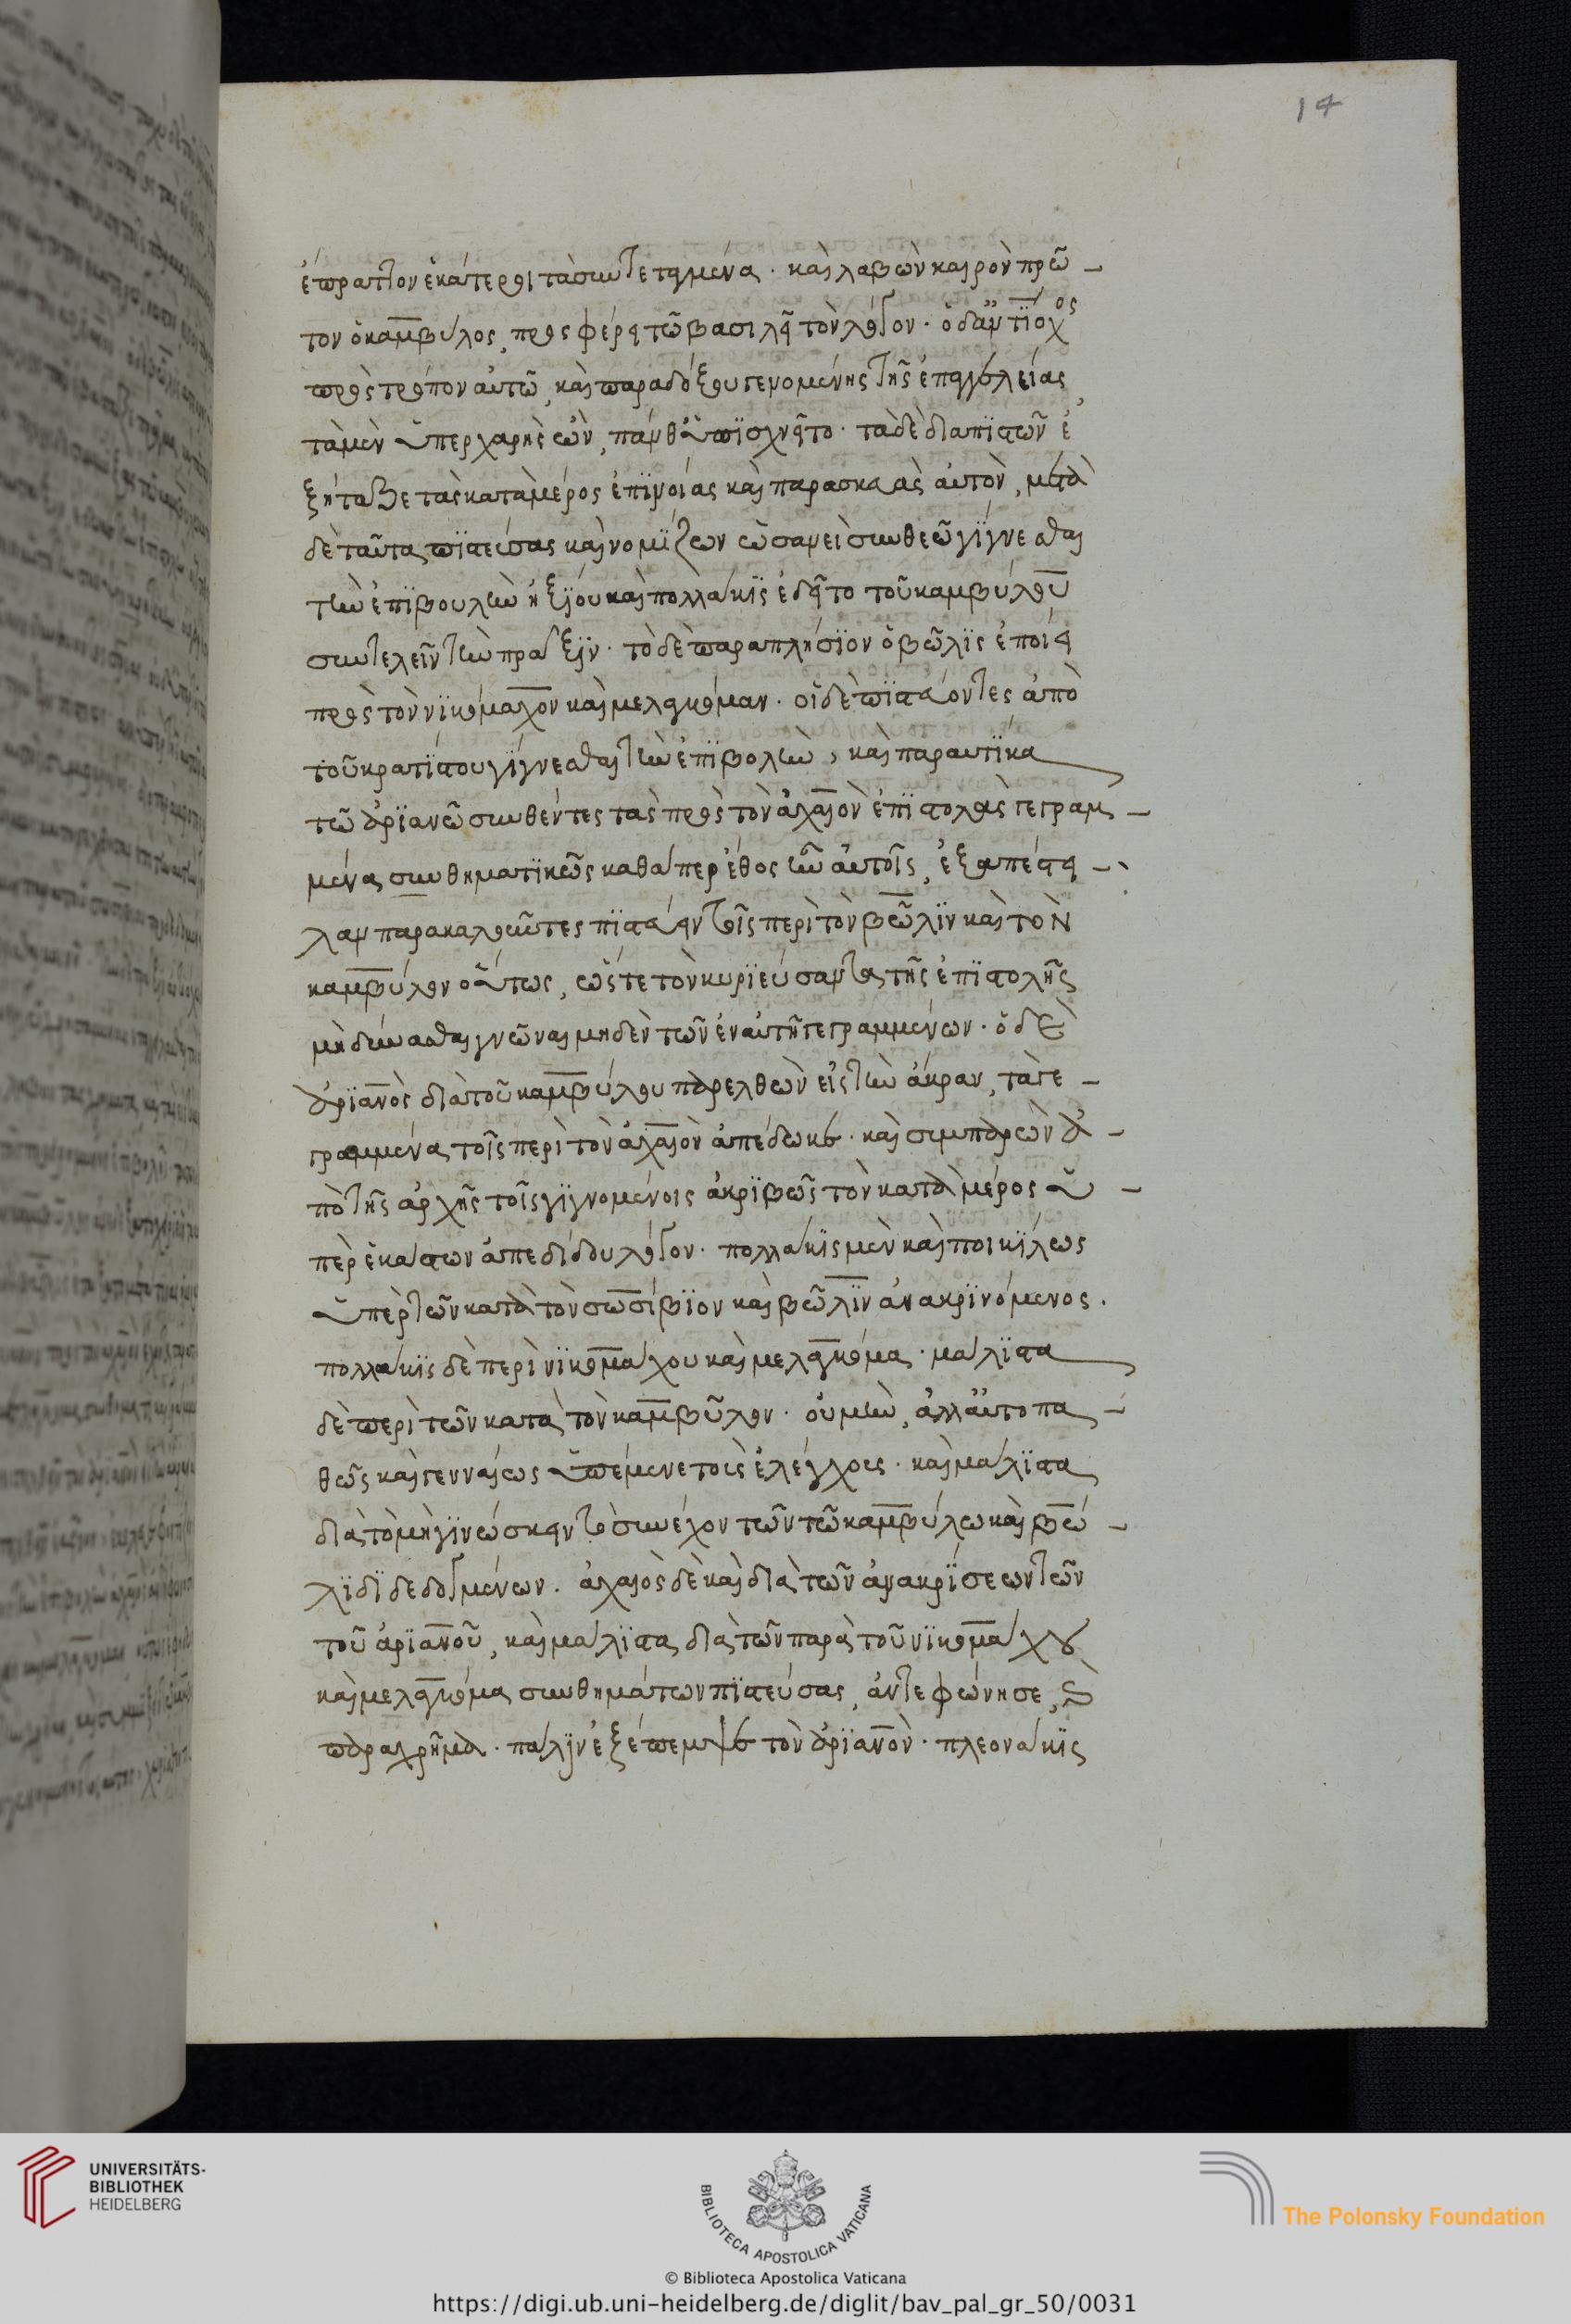 14
ἔπραττον ἑκάτεροι τὰ συντεταγμένα · καὶ λαβὼν καιρὸν πρῶ-
τον ὁ καμβύλος, προσφέρει τῶ βασιλεῖ τὸν λόγον · ὁ δ' ἀντίοχος
πρὸς τρόπον αὐτῶ, καὶ παραδόξου γενομένης τῆς ἐπαγγελείας,
τὰ μὲν ὑπερχαρὴς ὢν, πάνθ' ὑπισχνεῖτο · τὰ δὲ διαπιστῶν ἐ
ξήταζε τὰς κατὰ μέρος ἐπινοίας καὶ παρασκευὰς αὐτὸν, μετὰ
δὲ ταῦτα πιστεύσας καὶ νομίζων ὡσανεὶ σὺν θεῶ γίγνεσθαι
τὴν ἐπιβουλὴν ἠξίου καὶ πολλάκις ἐδεῖτο τοῦ καμβύλου
συντελεῖν τὴν πρᾶξιν · τὸ δὲ παραπλήσιον ὁ βῶλις ἐποίει
πρὸς τὸν νικόμαχον καὶ μελαγκόμαν · οἱ δὲ πιστεύοντες ἀπὸ
τοῦ κρατίστου γίγνεσθαι τὴν ἐπιβολὴν, καὶ παραυτίκα
τῶ ἀριανῶ συνθέντες τὰς πρὸς τὸν ἀχαιὸν ἐπιστολὰς γεγραμ-
μένας συνθηματικῶς καθάπερ ἔθος ἦν αὐτοῖς, ἐξαπέστει-
λαν παρακαλοῦντες πιστεύειν τοῖς περὶ τὸν βῶλιν καὶ τὸν
καμβύλον οὕτως, ὥστε τὸν κυριεύσαντα τῆς ἐπιστολῆς
μὴ δύνασθαι γνῶναι μηδὲν τῶν ἐν αὐτῆ γεγραμμένων · ὁ δὲ
ἀριανὸς διὰ τοῦ καμβύλου παρελθὼν εἰς τὴν ἄκραν, τὰ γε-
γραμμένα τοῖς περὶ τὸν ἀχαιὸν ἀπέδωκε · καὶ συμπαρὼν ἀ-
πὸ τῆς ἀρχῆς τοῖς γιγνομένοις ἀκριβῶς τὸν κατὰ μέρος ὑ-
πὲρ ἑκάστων ἀπεδίδου λόγον · πολλάκις μὲν καὶ ποικίλως
ὑπὲρ τῶν κατὰ τὸν σωσίβιον καὶ βῶλιν ἀνακρινόμενος ·
πολλάκις δὲ περὶ νικομάχου καὶ μελαγκόμα · μάλιστα
δὲ περὶ τῶν κατὰ τὸν καμβύλον · οὐ μὴν, ἀλλ' αὐτοπα-
θῶς καὶ γενναίως ὑπέμενε τοὺς ἐλέγχους · καὶ μάλιστα
διὰ τὸ μὴ γινώσκειν τὸ συνέχον τῶν τῶ καμβύλω καὶ βώ-
λιδι δεδογμένων · ἀχαιὸς δὲ καὶ διὰ τῶν ἀνακρίσεων τῶν
τοῦ ἀριανοῦ, καὶ μάλιστα διὰ τῶν παρὰ τοῦ νικομάχου
καὶ μελαγκόμα συνθημάτων πιστεύσας, ἀντεφώνησε, καὶ
παραχρῆμα · πάλιν ἐξέπεμψε τὸν ἀριανόν · πλεονάκις
UNIVERSITÄTS-
BIBLIOTHEK
HEIDELBERG
BIBLIOTECA APOSTOLICA VATICANA
The Polonsky Foundation
© Biblioteca Apostolica Vaticana
https://digi.ub.uni-heidelberg.de/diglit/bav_pal_gr_50/0031